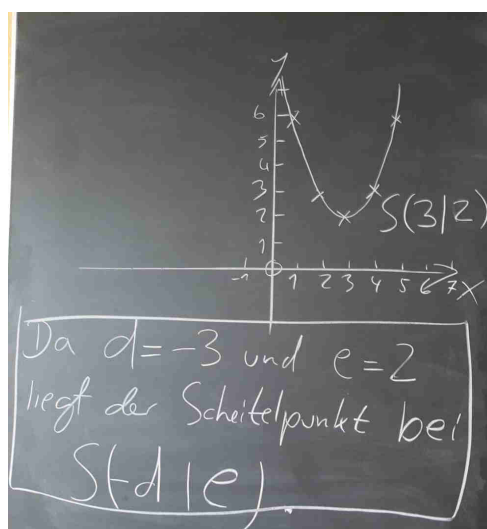 y
7
6
5
4
3
2
1
S(3|2)
-1 1 2 3 4 5 6 7 x
Da d=-3 und e=2
liegt der Scheitelpunkt bei
S(-d|e).